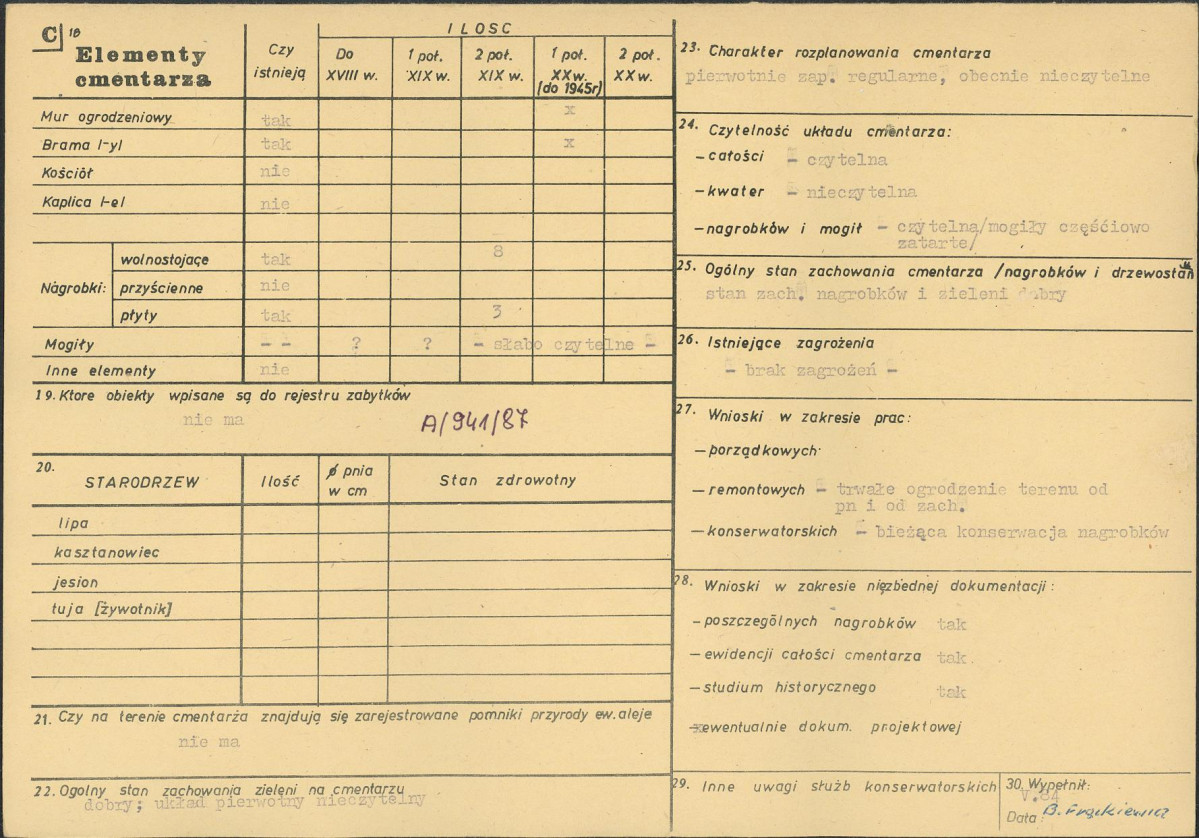 C 18
Elementy cmentarza
Czy istnieją
ILOSC
Do XVIII w.
1 poł. XIX w.
2 poł. XIX w.
1 poł. XX w. [do 1945r]
2 poł. XX w.
Mur ogrodzeniowy tak x
Brama /-y/ tak x
Kościół nie
Kaplica /-e/ nie
Nagrobki:
wolnostojące tak 8
przyścienne nie
płyty tak 3
Mogiły - - ? ? - słabo czytelne -
Inne elementy nie
19. Ktore obiekty wpisane są do rejestru zabytków
nie ma A/941/87
20. STARODRZEW Ilość ø pnia w cm Stan zdrowotny
lipa
kasztanowiec
jesion
tuja [żywotnik]
21. Czy na terenie cmentarża znajdują się zarejestrowane pomniki przyrody ew. aleje
nie ma
22. Ogolny stan zachowania zieleni na cmentarzu
dobry; układ pierwotny nieczytelny
23. Charakter rozplanowania cmentarza
pierwotnie zap. regularne, obecnie nieczytelne
24. Czytelność układu cmentarza:
-całości - czytelna
-kwater - nieczytelna
-nagrobków i mogił - czytelna/mogiły częśćiowo
zatarte/
25. Ogólny stan zachowania cmentarza /nagrobków i drzewostan
stan zach. nagrobków i zieleni dobry
26. Istniejące zagrożenia
- brak zagrożeń -
27. Wnioski w zakresie prac:
-porządkowych
-remontowych - trwałe ogrodzenie terenu od
pn i od zach.
-konserwatorskich - bieżąca konserwacja nagrobków
28. Wnioski w zakresie niezbednej dokumentacji:
-poszczególnych nagrobków tak
-ewidencji całości cmentarza tak
-studium historycznego tak
-ewentualnie dokum. projektowej
29. Inne uwagi służb konserwatorskich
30. Wypełnił:
V.84
Data: B. Frąckiewicz